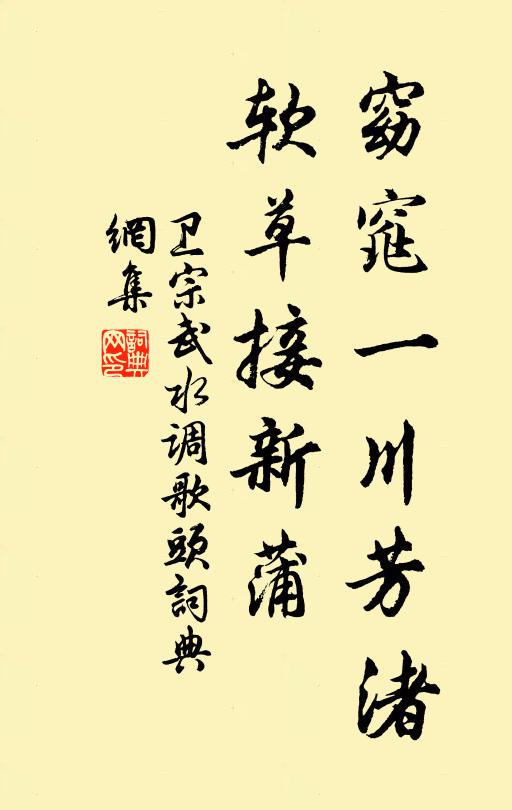 窈窕一川芳渚
软草接新蒲
卫宗武水调歌頭詞典
網集
詞典
网印